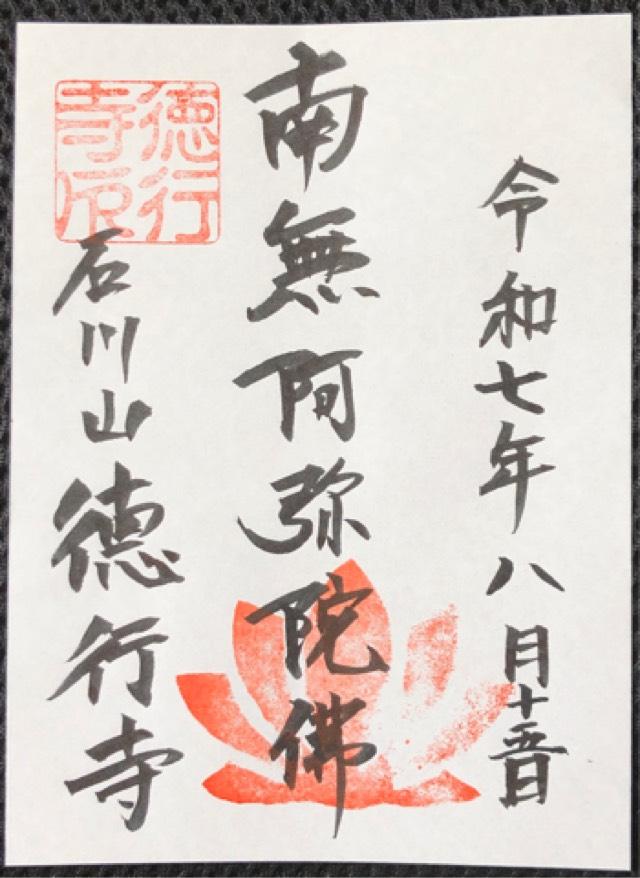 令和七年八月十五日
南無阿弥陀佛
徳行
寺印
石川山徳行寺